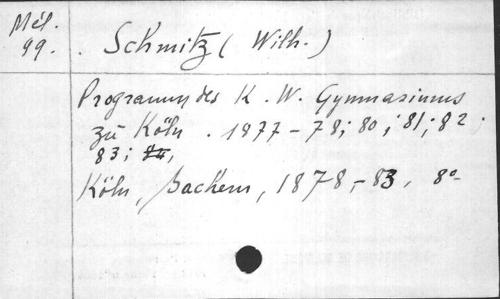 Mél.
99.
Schmitz (Wilh.)
Programm des K. W. Gymnasiums
zu Köln. 1877-78; 80; 81; 82;
83; 84,
Köln, Bachem, 1878-83. 8°